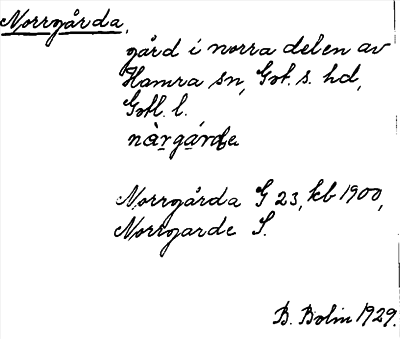 Norrgårda,
gård i norra delen av
Hamra sn, Got. s. hd,
Gotl. l.
nàrgárde
Norrgårda G 23, kb 1900,
Norrgarde S.
B. Bolin 1929.